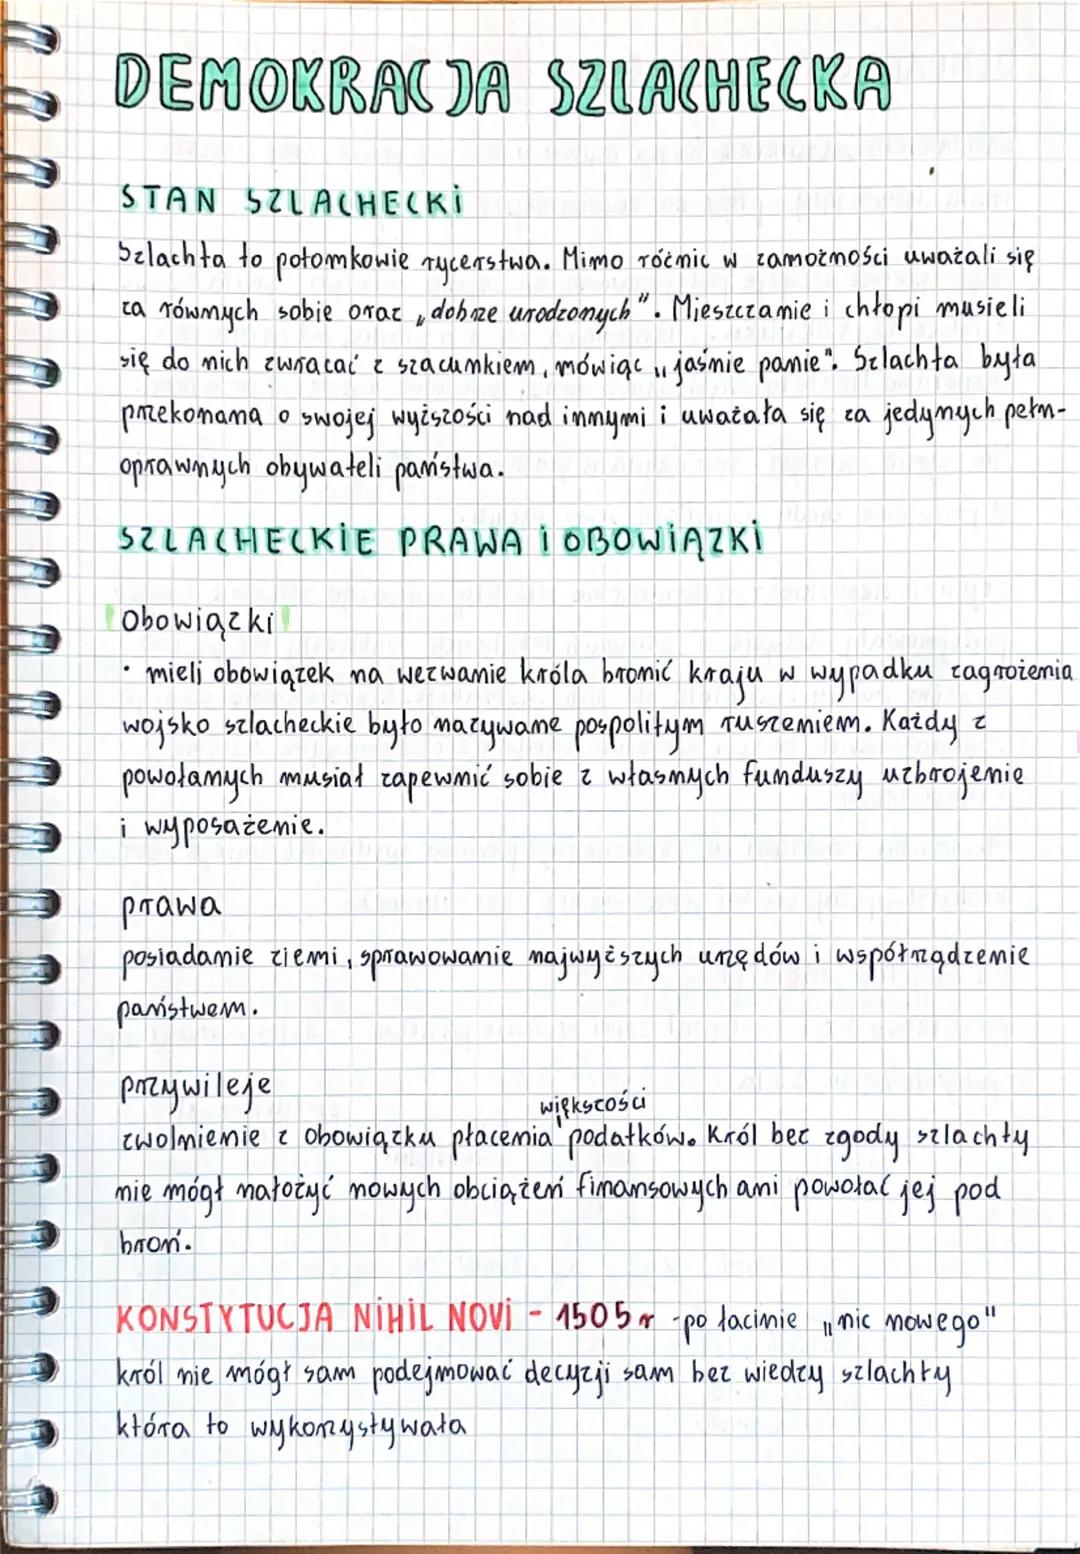 DEMOKRACJA SZLACHECKA
STAN SZLACHECKI
Szlachta to potomkowie rycerstwa. Mimo różnic w zamożności uważali się
za równych sobie oraz „dobrze urodzonych". Mieszczanie i chłopi musieli
się do nich zwracać z szacunkiem, mówiąc „jaśnie panie". Szlachta była
przekonana o swojej wyższości nad innymi i uważała się za jedynych pełn-
oprawnych obywateli państwa.
SZLACHECKIE PRAWA i OBOWIĄZKI
Obowiązki
• mieli obowiązek na wezwanie króla bronić kraju w wypadku zagrożenia
wojsko szlacheckie było nazywane pospolitym ruszeniem. Każdy z
powołanych musiał zapewnić sobie z własnych funduszy uzbrojenie
i wyposażenie.
prawa
posiadanie ziemi, sprawowanie najwyższych urzędów i współrządzenie
państwem.
przywileje
większości
zwolnienie z obowiązku płacenia podatków. Król bez zgody szlachty
nie mógł nałożyć nowych obciążeń finansowych ani powołać jej pod
broń.
KONSTYTUCJA NIHIL NOVI - 1505 r - po łacinie „nic nowego"
król nie mógł sam podejmować decyzji sam bez wiedzy szlachty
która to wykorzystywała